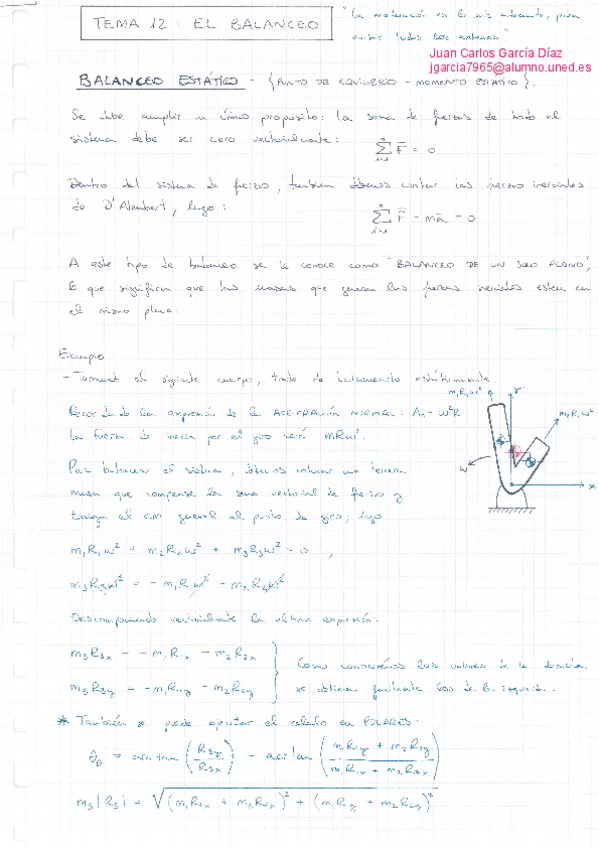 TEMA 12: EL BALANCEO
"La motivación es lo más
Juan Carlos García Díaz
jgarcia7965@alumno.uned.es
BALANCEO ESTÁTICO - {PUNTO DE EQUILIBRIO - MOMENTO ESTÁTICO}.
Se debe cumplir un único proposito: la suma de fuerzas de todo el
sistema debe ser cero vectorialmente:
Σ F̄ = 0
Dentro del sistema de fuerzas, tambien debemos contar las fuerzas inerciales
de D'Alembert, luego:
Σ F̄ - mā = 0
A este tipo de balanceo se le conoce como "BALANCEO DE UN SOLO PLANO",
lo que significa que las masas que generan las fuerzas inerciales estan en
el mismo plano.
Ejemplo
- Tomemos el siguiente cuerpo, trate de balancearlo estáticamente
m₁R₁ω²
Y
m₂R₂ω²
ω
X
Recordando la expresión de la ACELERACIÓN NORMAL: An = ω²R
la fuerza de inercia por el giro será mRω².
Para balancear el sistema, debemos colocar una tercera
masa que compense la suma vectorial de fuerzas y
traiga el c.m general al punto de giro, luego
m₁R₁ω² + m₂R₂ω² + m₃R₃ω² = 0,
m₃R₃ω² = - m₁R₁ω² - m₂R₂ω²
Descomponiendo vectorialmente la última expresión:
m₃R₃x = - m₁R₁x - m₂R₂x
m₃R₃y = - m₁R₁y - m₂R₂y
Como conocemos los valores de la derecha
se obtienen facilmente los de la izquierda.
* También se puede apuntar el calculo en POLARES:
θ = arctan (R₃y / R₃x) = arctan (m₁R₁y + m₂R₂y / m₁R₁x + m₂R₂x)
m₃|R₃| = √(m₁R₁x + m₂R₂x)² + (m₁R₁y + m₂R₂y)²